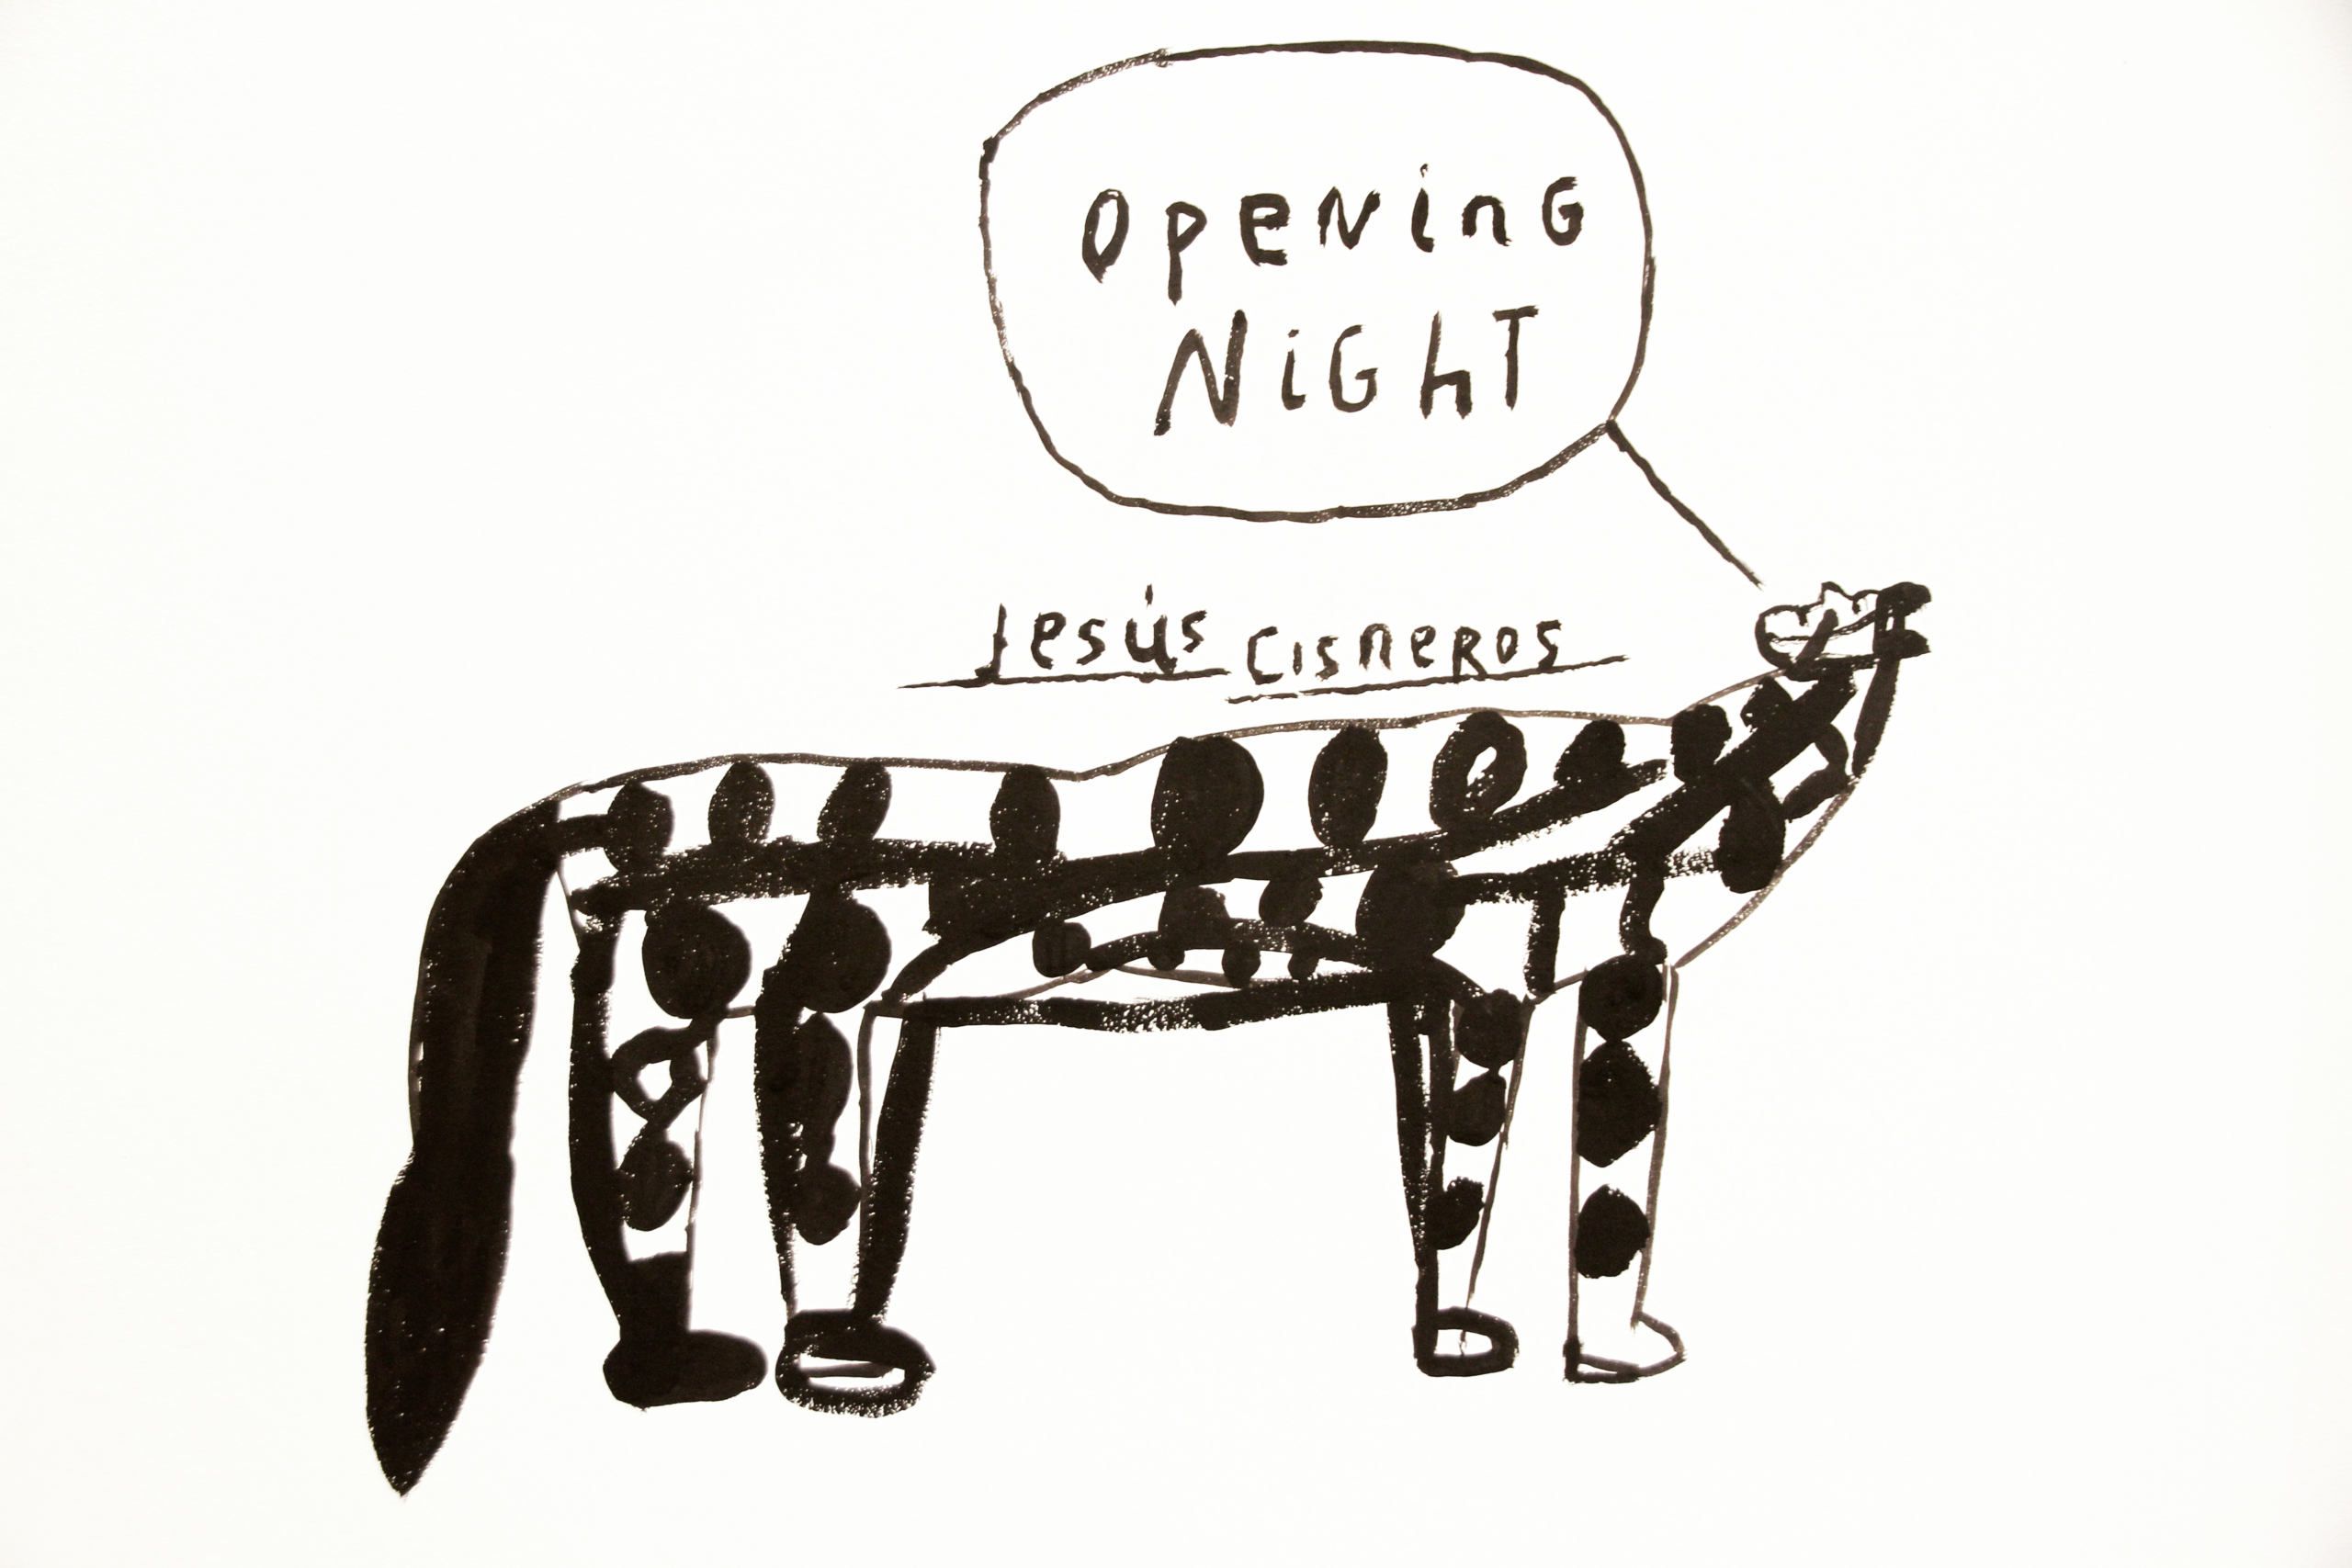 OpeNinG
NiGhT
Jesús CisneRos